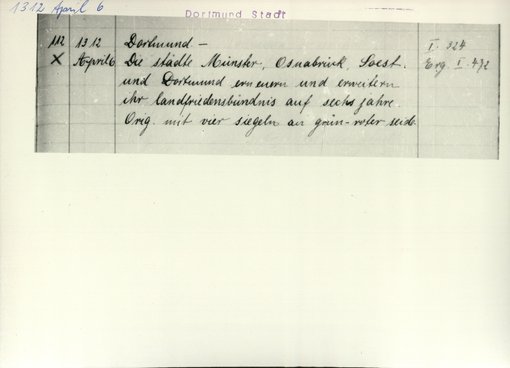 1312 April 6
Dortmund Stadt
112 1312 Dortmund – I. 324
X April 6 Die städte Münster, Osnabrück, Soest Erg. I. 472
und Dortmund erneuern und erweitern
ihr landfriedensbündnis auf sechs jahre.
Orig. mit vier siegeln an grün-roter seide